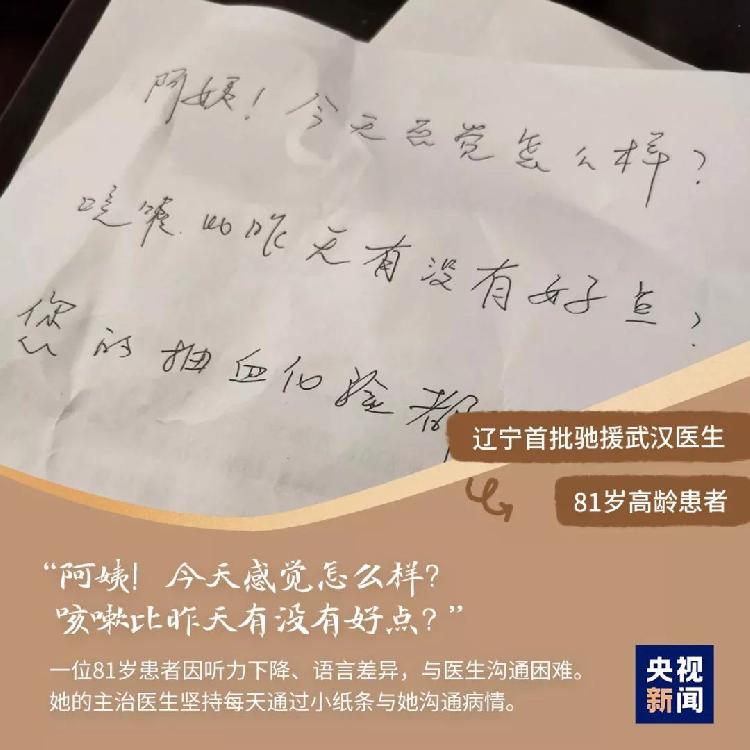 阿姨！今天感觉怎么样？
咳嗽比昨天有没有好点？
您的抽血化验都
辽宁首批驰援武汉医生
81岁高龄患者
“阿姨！今天感觉怎么样？
咳嗽比昨天有没有好点？”
一位81岁患者因听力下降、语言差异，与医生沟通困难。
她的主治医生坚持每天通过小纸条与她沟通病情。
央视
新闻